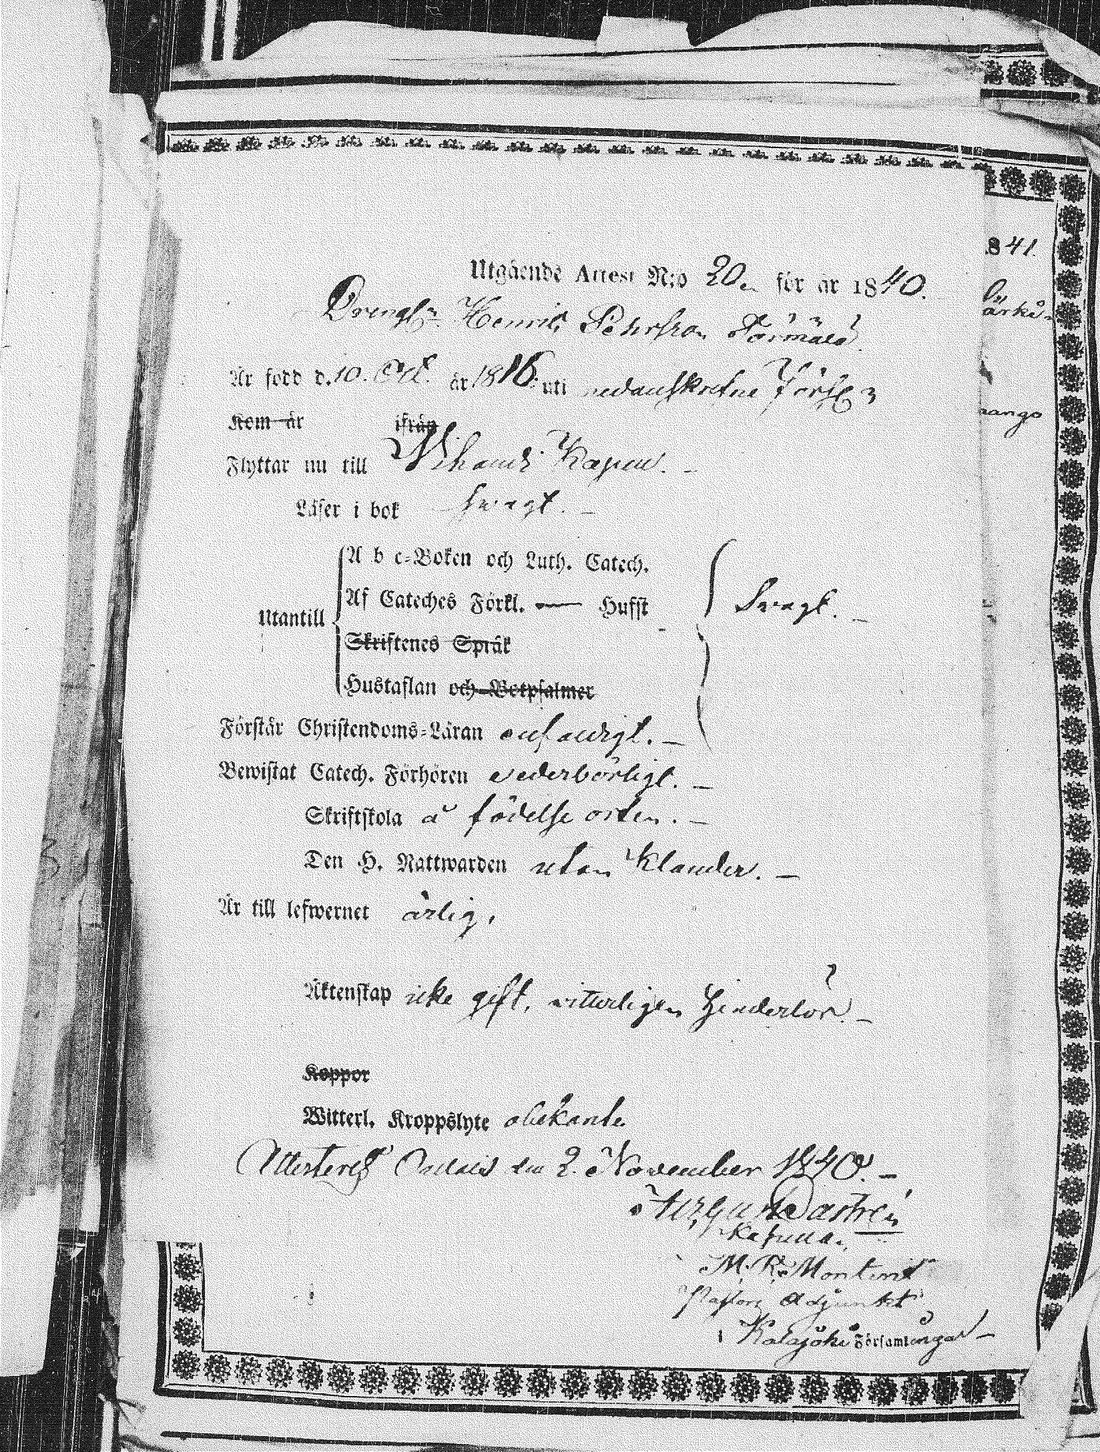 Utgående Attest N:o 20 för år 1840.
Drengen Henric Pehrsson Törmälä
Är född d. 10. Oct. år 1816 uti nedanskrefne Förs.
Kom år ifrån
Flyttar nu till Vihandi Kapell.
Läser i bok swagt.
A b c-Boken och Luth. Catech.
Af Cateches Förkl. — Husst
Swagt.
Utantill
Skriftenes Språk
Hustaflan och Botpsalmer
Förstår Christendoms-Läran enfaldigt.
Bewistat Catech. Förhören vederbörligt.
Skriftskola å födelse orten.
Den H. Nattwarden utan Klander.
Är till lefwernet ärlig,
Äktenskap icke gift, vitterligen hinderlös.
Koppor
Witterl. Kroppslyte obekante
Attesteras den 2. November 1840.
Castrén
Kapellan
M. R. Montin
Pastors Adjunkt
Kalajoki Församlingar
1841.